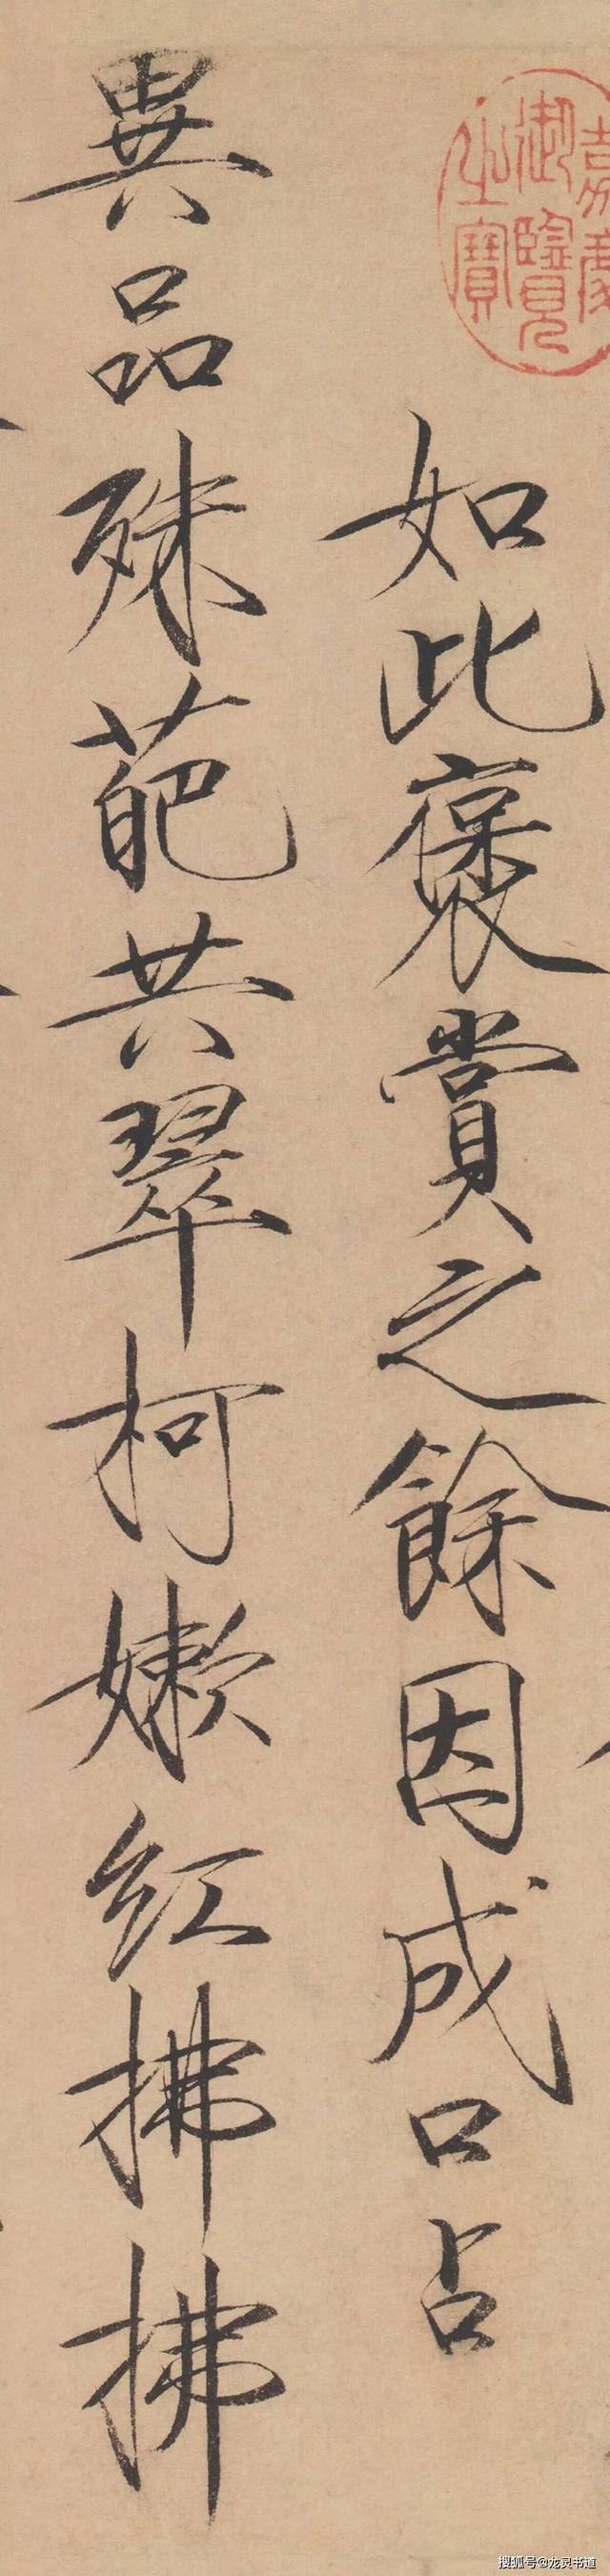 嘉慶御覽之寶
如此褒賞之餘因成口占
異品殊葩共翠柯嫩紅拂拂
搜狐号@龙灵书道